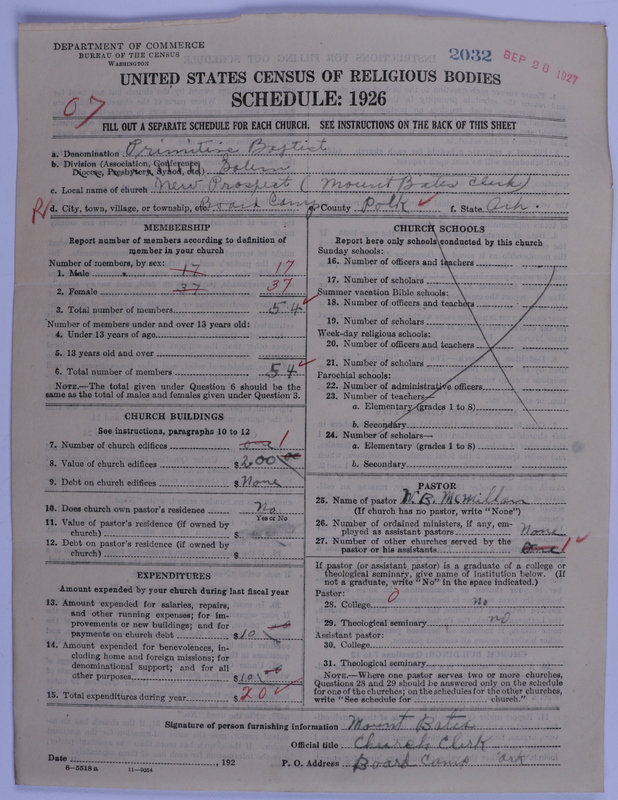 DEPARTMENT OF COMMERCE
BUREAU OF THE CENSUS
WASHINGTON
2032
SEP 26 1927
UNITED STATES CENSUS OF RELIGIOUS BODIES
SCHEDULE: 1926
07
FILL OUT A SEPARATE SCHEDULE FOR EACH CHURCH. SEE INSTRUCTIONS ON THE BACK OF THIS SHEET
a. Denomination Primitive Baptist
b. Division (Association, Conference, Diocese, Presbytery, Synod, etc.) Salem
c. Local name of church New Prospect (Mount Bates Clerk)
R d. City, town, village, or township, etc. Board Camp e. County Polk f. State Ark.
MEMBERSHIP
Report number of members according to definition of
member in your church
Number of members, by sex:
1. Male 17 17
2. Female 37 37
3. Total number of members 54
Number of members under and over 13 years old:
4. Under 13 years of age
5. 13 years old and over
6. Total number of members 54
NOTE.—The total given under Question 6 should be the
same as the total of males and females given under Question 3.
CHURCH BUILDINGS
See instructions, paragraphs 10 to 12
7. Number of church edifices one 1
8. Value of church edifices $200 00
9. Debt on church edifices $None
10. Does church own pastor's residence No
Yes or No
11. Value of pastor's residence (if owned by
church) $
12. Debt on pastor's residence (if owned by
church) $
EXPENDITURES
Amount expended by your church during last fiscal year
13. Amount expended for salaries, repairs,
and other running expenses; for im-
provements or new buildings; and for
payments on church debt $10
14. Amount expended for benevolences, in-
cluding home and foreign missions; for
denominational support; and for all
other purposes $10 00
15. Total expenditures during year $20
CHURCH SCHOOLS
Report here only schools conducted by this church
Sunday schools:
16. Number of officers and teachers
17. Number of scholars
Summer vacation Bible schools:
18. Number of officers and teachers
19. Number of scholars
Week-day religious schools:
20. Number of officers and teachers
21. Number of scholars
Parochial schools:
22. Number of administrative officers
23. Number of teachers—
a. Elementary (grades 1 to 8)
b. Secondary
24. Number of scholars—
a. Elementary (grades 1 to 8)
b. Secondary
PASTOR
25. Name of pastor W. B. McMillan
(If church has no pastor, write "None")
26. Number of ordained ministers, if any, em-
ployed as assistant pastors None
27. Number of other churches served by the
pastor or his assistants One 1
If pastor (or assistant pastor) is a graduate of a college or
theological seminary, give name of institution below. (If
not a graduate, write "No" in the space indicated.)
Pastor: 0
28. College No
29. Theological seminary no
Assistant pastor:
30. College
31. Theological seminary
NOTE.—Where one pastor serves two or more churches,
Questions 28 and 29 should be answered only on the schedule
for one of the churches; on the schedules for the other churches,
write "See schedule for church."
Signature of person furnishing information Mount Bates
Official title Church Clerk
Date , 192 P. O. Address Board Camp Ark
8—5518a 11—9054